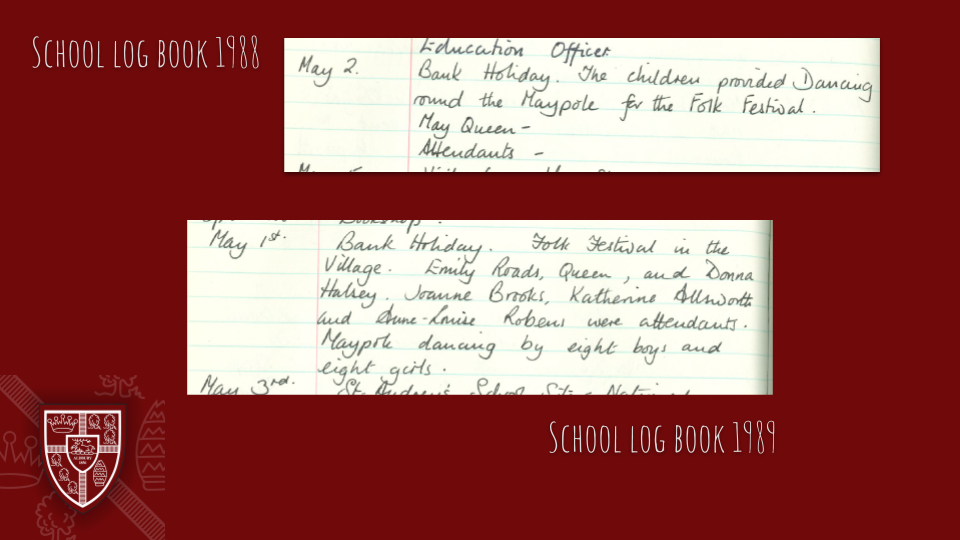 School log book 1988
Education Officer
May 2. Bank Holiday. The children provided Dancing
round the Maypole for the Folk Festival.
May Queen –
Attendants –
Bookshops.
May 1st. Bank Holiday. Folk Festival in the
Village. Emily Roads, Queen, and Donna
Halsey. Joanne Brooks, Katherine Allsworth
and Anne-Louise Robens were attendants.
Maypole dancing by eight boys and
eight girls.
May 3rd. St. Andrew's School Site
School log book 1989
ALDBURY